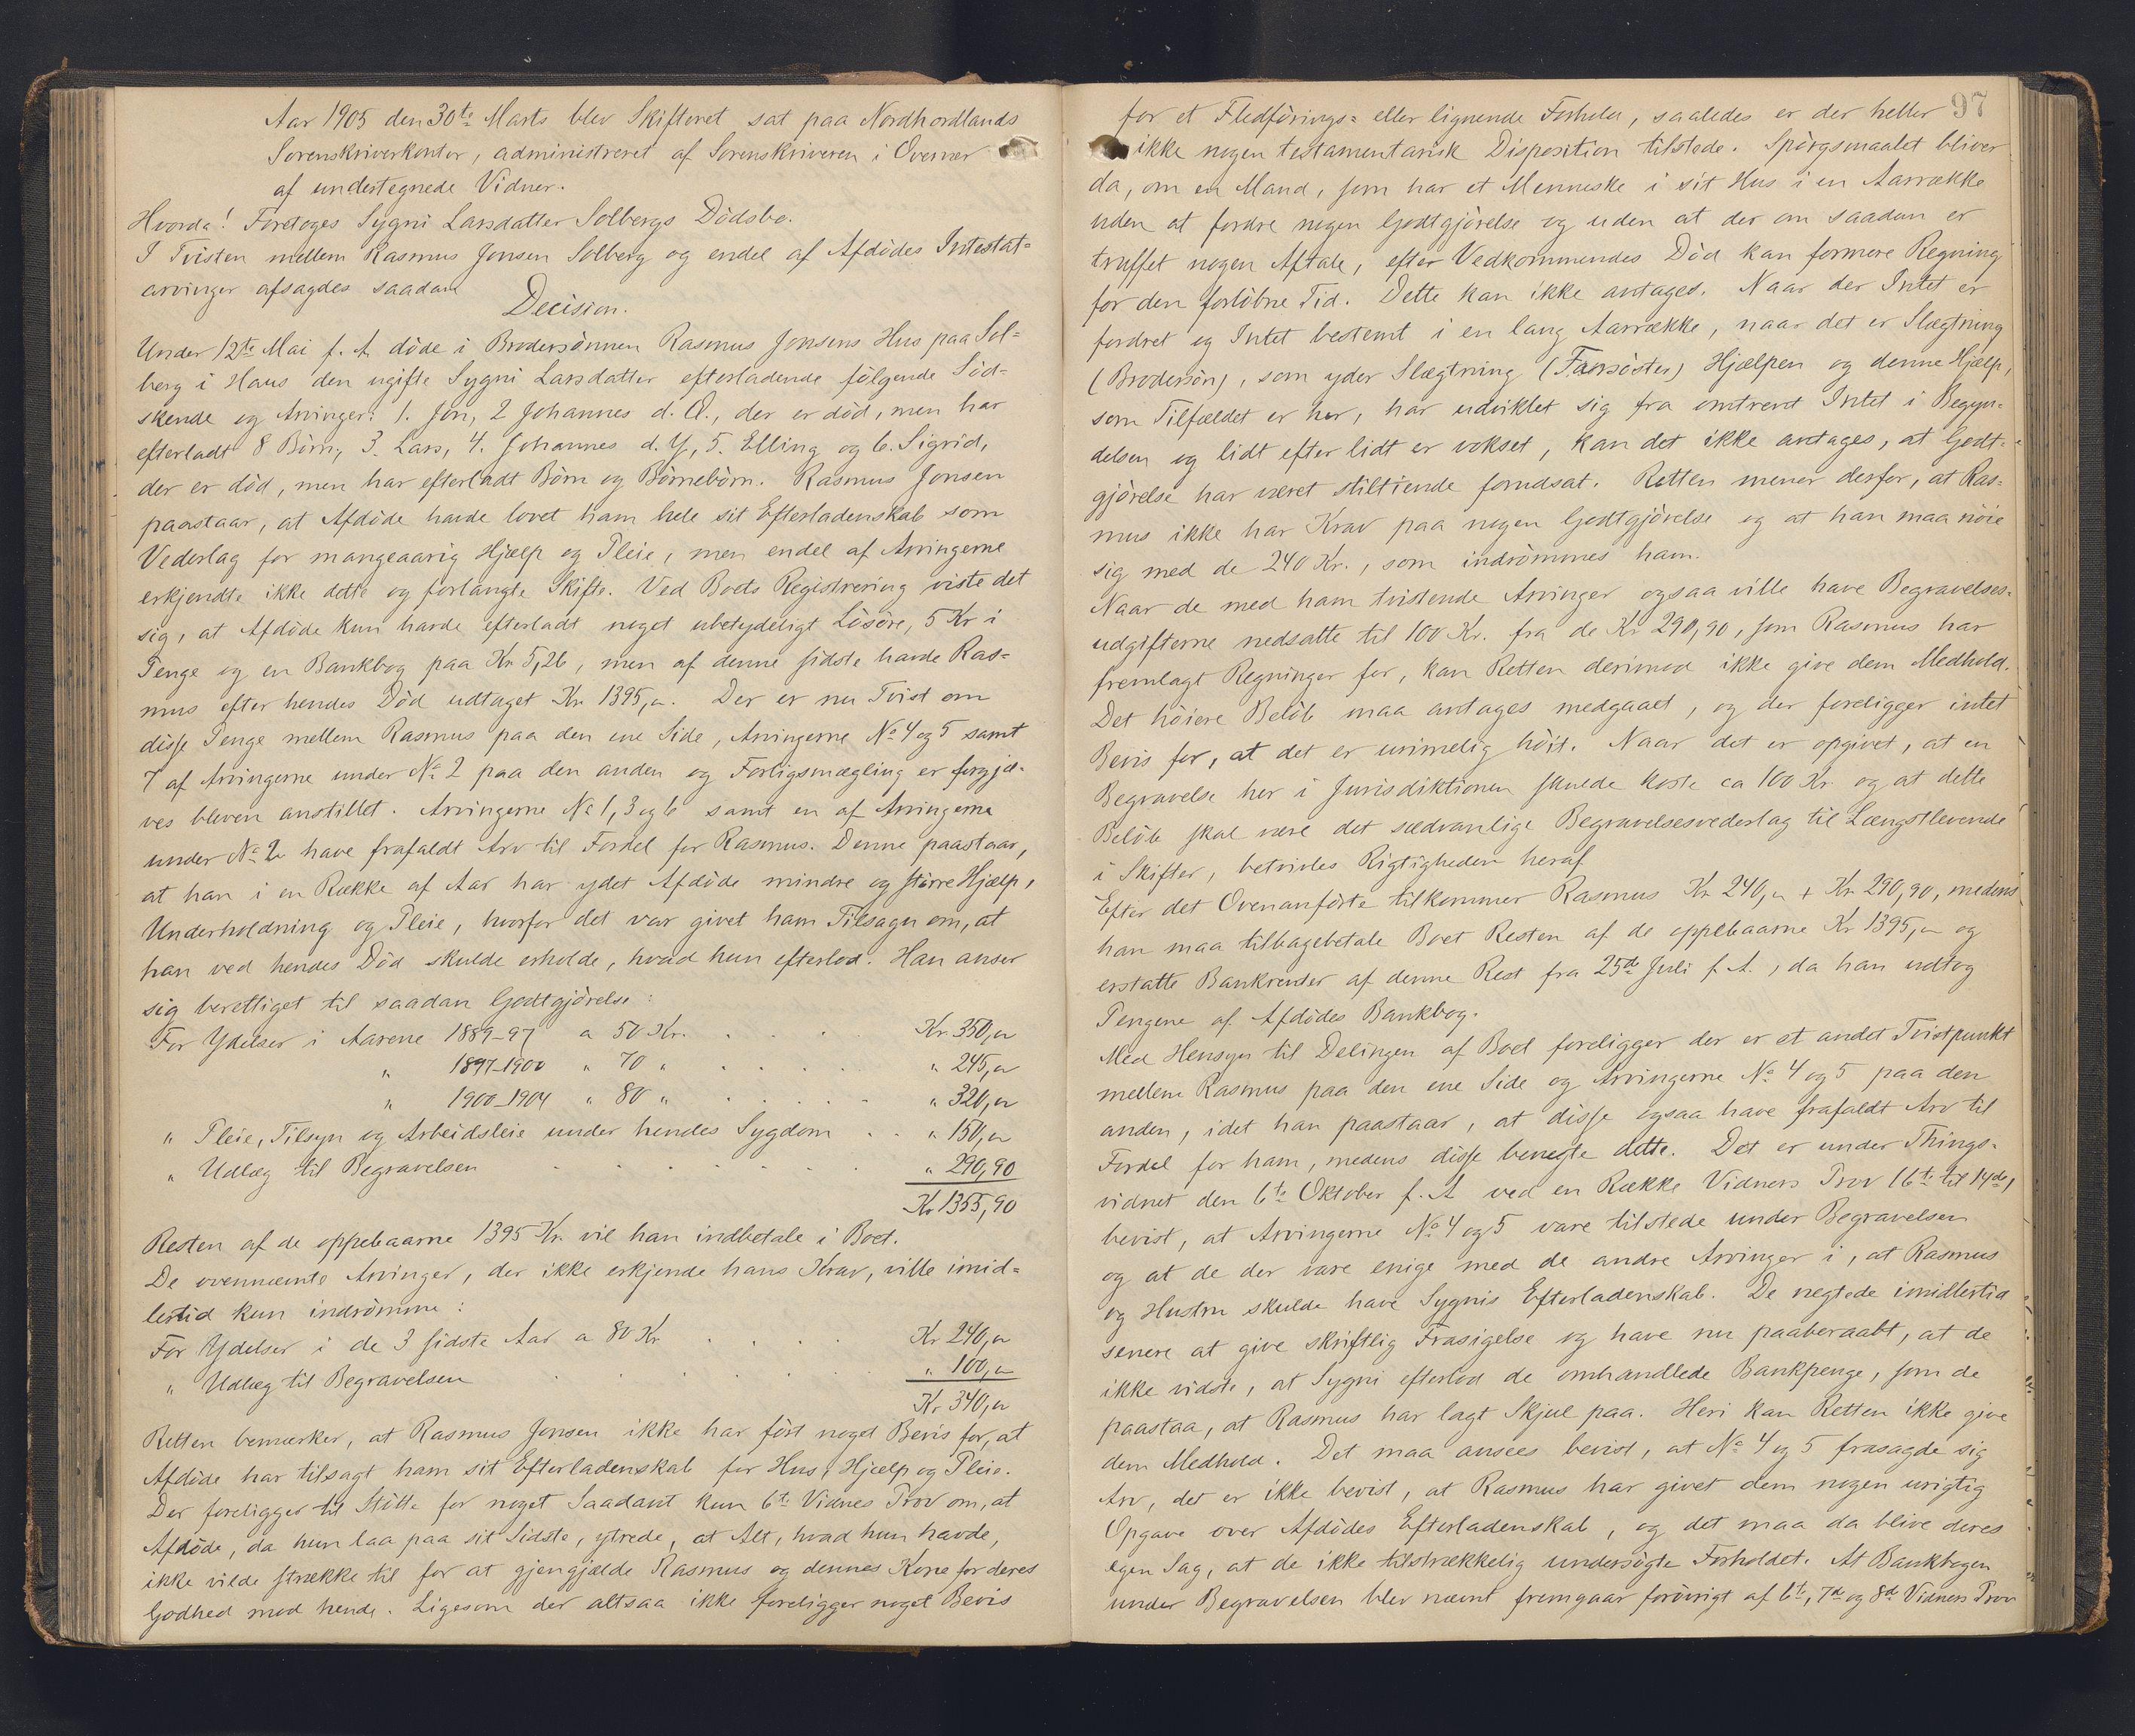 Aar 1905 den 30te Marts blev Skifteret sat paa Nordhordlands
Sorenskriverkontor, administreret af Sorenskriveren i Overvær
af undertegnede Vidner.
Hvorda! Foretoges Sygni Larsdatter Solbergs Dödsbo.
I Tvisten mellem Rasmus Jonsen Solberg og endel af Afdödes Intestat=
arvinger afsagdes saadan
Decision.
Under 12te Mai f. A. döde i Brodersönnen Rasmus Jonsens Hus paa Sol=
berg i Haus den ugifte Sygni Larsdatter efterladende fölgende Söd=
skende og Arvinger: 1. Jon, 2 Johannes d. Æ., der er död, men har
efterladt 8 Börn, 3. Lars, 4. Johannes d. Y, 5. Elling og 6. Sigrid,
der er död, men har efterladt Börn og Börnebörn. Rasmus Jonsen
paastaar, at Afdöde havde lovet ham hele sit Efterladenskab som
Vederlag for mangeaarig Hjælp og Pleie, men endel af Arvingerne
erkjendte ikke dette og forlangte Skifte. Ved Boets Registrering viste det
sig, at Afdöde kun havde efterladt noget ubetydeligt Lösöre, 5 Kr i
Penge og en Bankbog paa Kr 5,26, men af denne sidste havde Ras=
mus efter hendes Död udtaget Kr 1395,„. Der er nu Tvist om
disse Penge mellem Rasmus paa den ene Side, Arvingerne No 4 og 5 samt
7 af Arvingerne under No 2 paa den anden og Forligsmægling er forgjæ=
ves bleven anstillet. Arvingerne No 1, 3 og 6 samt en af Arvingerne
under No 2 have frafaldt Arv til Fordel for Rasmus. Denne paastaar,
at han i en Række af Aar har ydet Afdöde mindre og större Hjælp,
Underholdning og Pleie, hvorfor det var givet ham Tilsagn om, at
han ved hendes Död skulde erholde, hvad hun efterlod. Han anser
sig berettiget til saadan Godtgjörelse:
For Ydelser i Aarene 1889-97 a 50 Kr. . . . Kr. 350,„
„ 1897-1900 „ 70 „ . . . . „ 245,„
„ 1900-1904 „ 80 „ . . . . . „ 320,„
„ Pleie, Tilsyn og Arbeidsleie under hendes Sygdom . . „ 150,„
„ Udlæg til Begravelsen . . . . . . „ 290,90
Kr 1355,90
Resten af de oppebaarne 1395 Kr. vil han indbetale i Boet.
De ovennævnte Arvinger, der ikke erkjende hans Krav, ville imid=
lertid kun indrömme:
For Ydelser i de 3 sidste Aar a 80 Kr . . . . Kr 240,„
„ Udlæg til Begravelsen . . . . . . „ 100,„
Kr 340,„
Retten bemærker, at Rasmus Jonsen ikke har fört noget Bevis for, at
Afdöde har tilsagt ham sit Efterladenskab for Hus, Hjælp og Pleie.
Der foreligger til Stötte for noget Saadant kun 6te Vidnes Prov om, at
Afdöde, da hun laa paa sit Sidste, ytrede, at Alt, hvad hun havde,
ikke vilde strække til for at gjengjælde Rasmus og dennes Kone for deres
Godhed mod hende. Ligesom der altsaa ikke foreligger noget Bevis
97
for et Fledförings= eller lignende Forhold, saaledes er der heller
ikke nogen testamentarisk Disposition tilstede. Spörgsmaalet bliver
da, om en Mand, som har et Menneske i sit Hus i en Aarrække
uden at fordre nogen Godtgjörelse og uden at der om saadan er
truffet nogen Aftale, efter Vedkommendes Död kan formere Regning
for den forlöbne Tid. Dette kan ikke antages. Naar der Intet er
fordret og Intet bestemt i en lang Aarrække, naar det er Slægtning
(Brodersön), som yder Slægtning (Farsöster) Hjælpen og denne Hjælp,
som Tilfældet er her, har udviklet sig fra omtrent Intet i Begyn=
delsen og lidt efter lidt er vokset, kan det ikke antages, at Godt=
gjörelse har været stiltiende forudsat. Retten mener derfor, at Ras=
mus ikke har Krav paa nogen Godtgjörelse og at han maa nöie
sig med de 240 Kr., som indrömmes ham.
Naar de med ham tvistende Arvinger ogsaa ville have Begravelses=
udgifterne nedsatte til 100 Kr. fra de Kr 290,90, som Rasmus har
fremlagt Regninger for, kan Retten derimod ikke give dem Medhold.
Det höiere Belöb maa antages medgaaet, og der foreligger intet
Bevis for, at det er urimelig höit. Naar det er opgivet, at en
Begravelse her i Jurisdiktionen skulde koste ca 100 Kr. og at dette
Belöb skal være det sædvanlige Begravelsesvederlag til Længstlevende
i Skifter, betviles Rigtigheden heraf.
Efter det Ovenanförte tilkommer Rasmus Kr 240,„ + Kr 290,90, medens
han maa tilbagebetale Boet Resten af de oppebaarne Kr 1395,„ og
erstatte Bankrenter af denne Rest fra 25de Juli f. A., da han udtog
Pengene af Afdödes Bankbog.
Med Hensyn til Delingen af Boet foreligger der er et andet Tvistpunkt
mellem Rasmus paa den ene Side og Arvingerne No 4 og 5 paa den
anden, idet han paastaar, at disse ogsaa have frafaldt Arv til
Fordel for ham, medens disse benegte dette. Det er under Things=
vidnet den 6te Oktober f. A. ved en Række Vidners Prov (6te til 14de)
bevist, at Arvingerne No 4 og 5 vare tilstede under Begravelsen
og at de der vare enige med de andre Arvinger i, at Rasmus
og Hustru skulde have Sygnis Efterladenskab. De negtede imidlertid
senere at give skriftlig Frasigelse og have nu paaberaabt, at de
ikke vidste, at Sygni efterlod de omhandlede Bankpenge, som de
paastaa, at Rasmus har lagt Skjul paa. Heri kan Retten ikke give
dem Medhold. Det maa ansees bevist, at No 4 og 5 frasagde sig
Arv, det er ikke bevist, at Rasmus har givet dem nogen urigtig
Opgave over Afdödes Efterladenskab, og det maa da blive deres
egen Sag, at de ikke tilstrækkelig undersögte Forholdet. At Bankbogen
under Begravelsen blev nævnt fremgaar forövrigt af 6te, 7de og 8de Vidners Prov